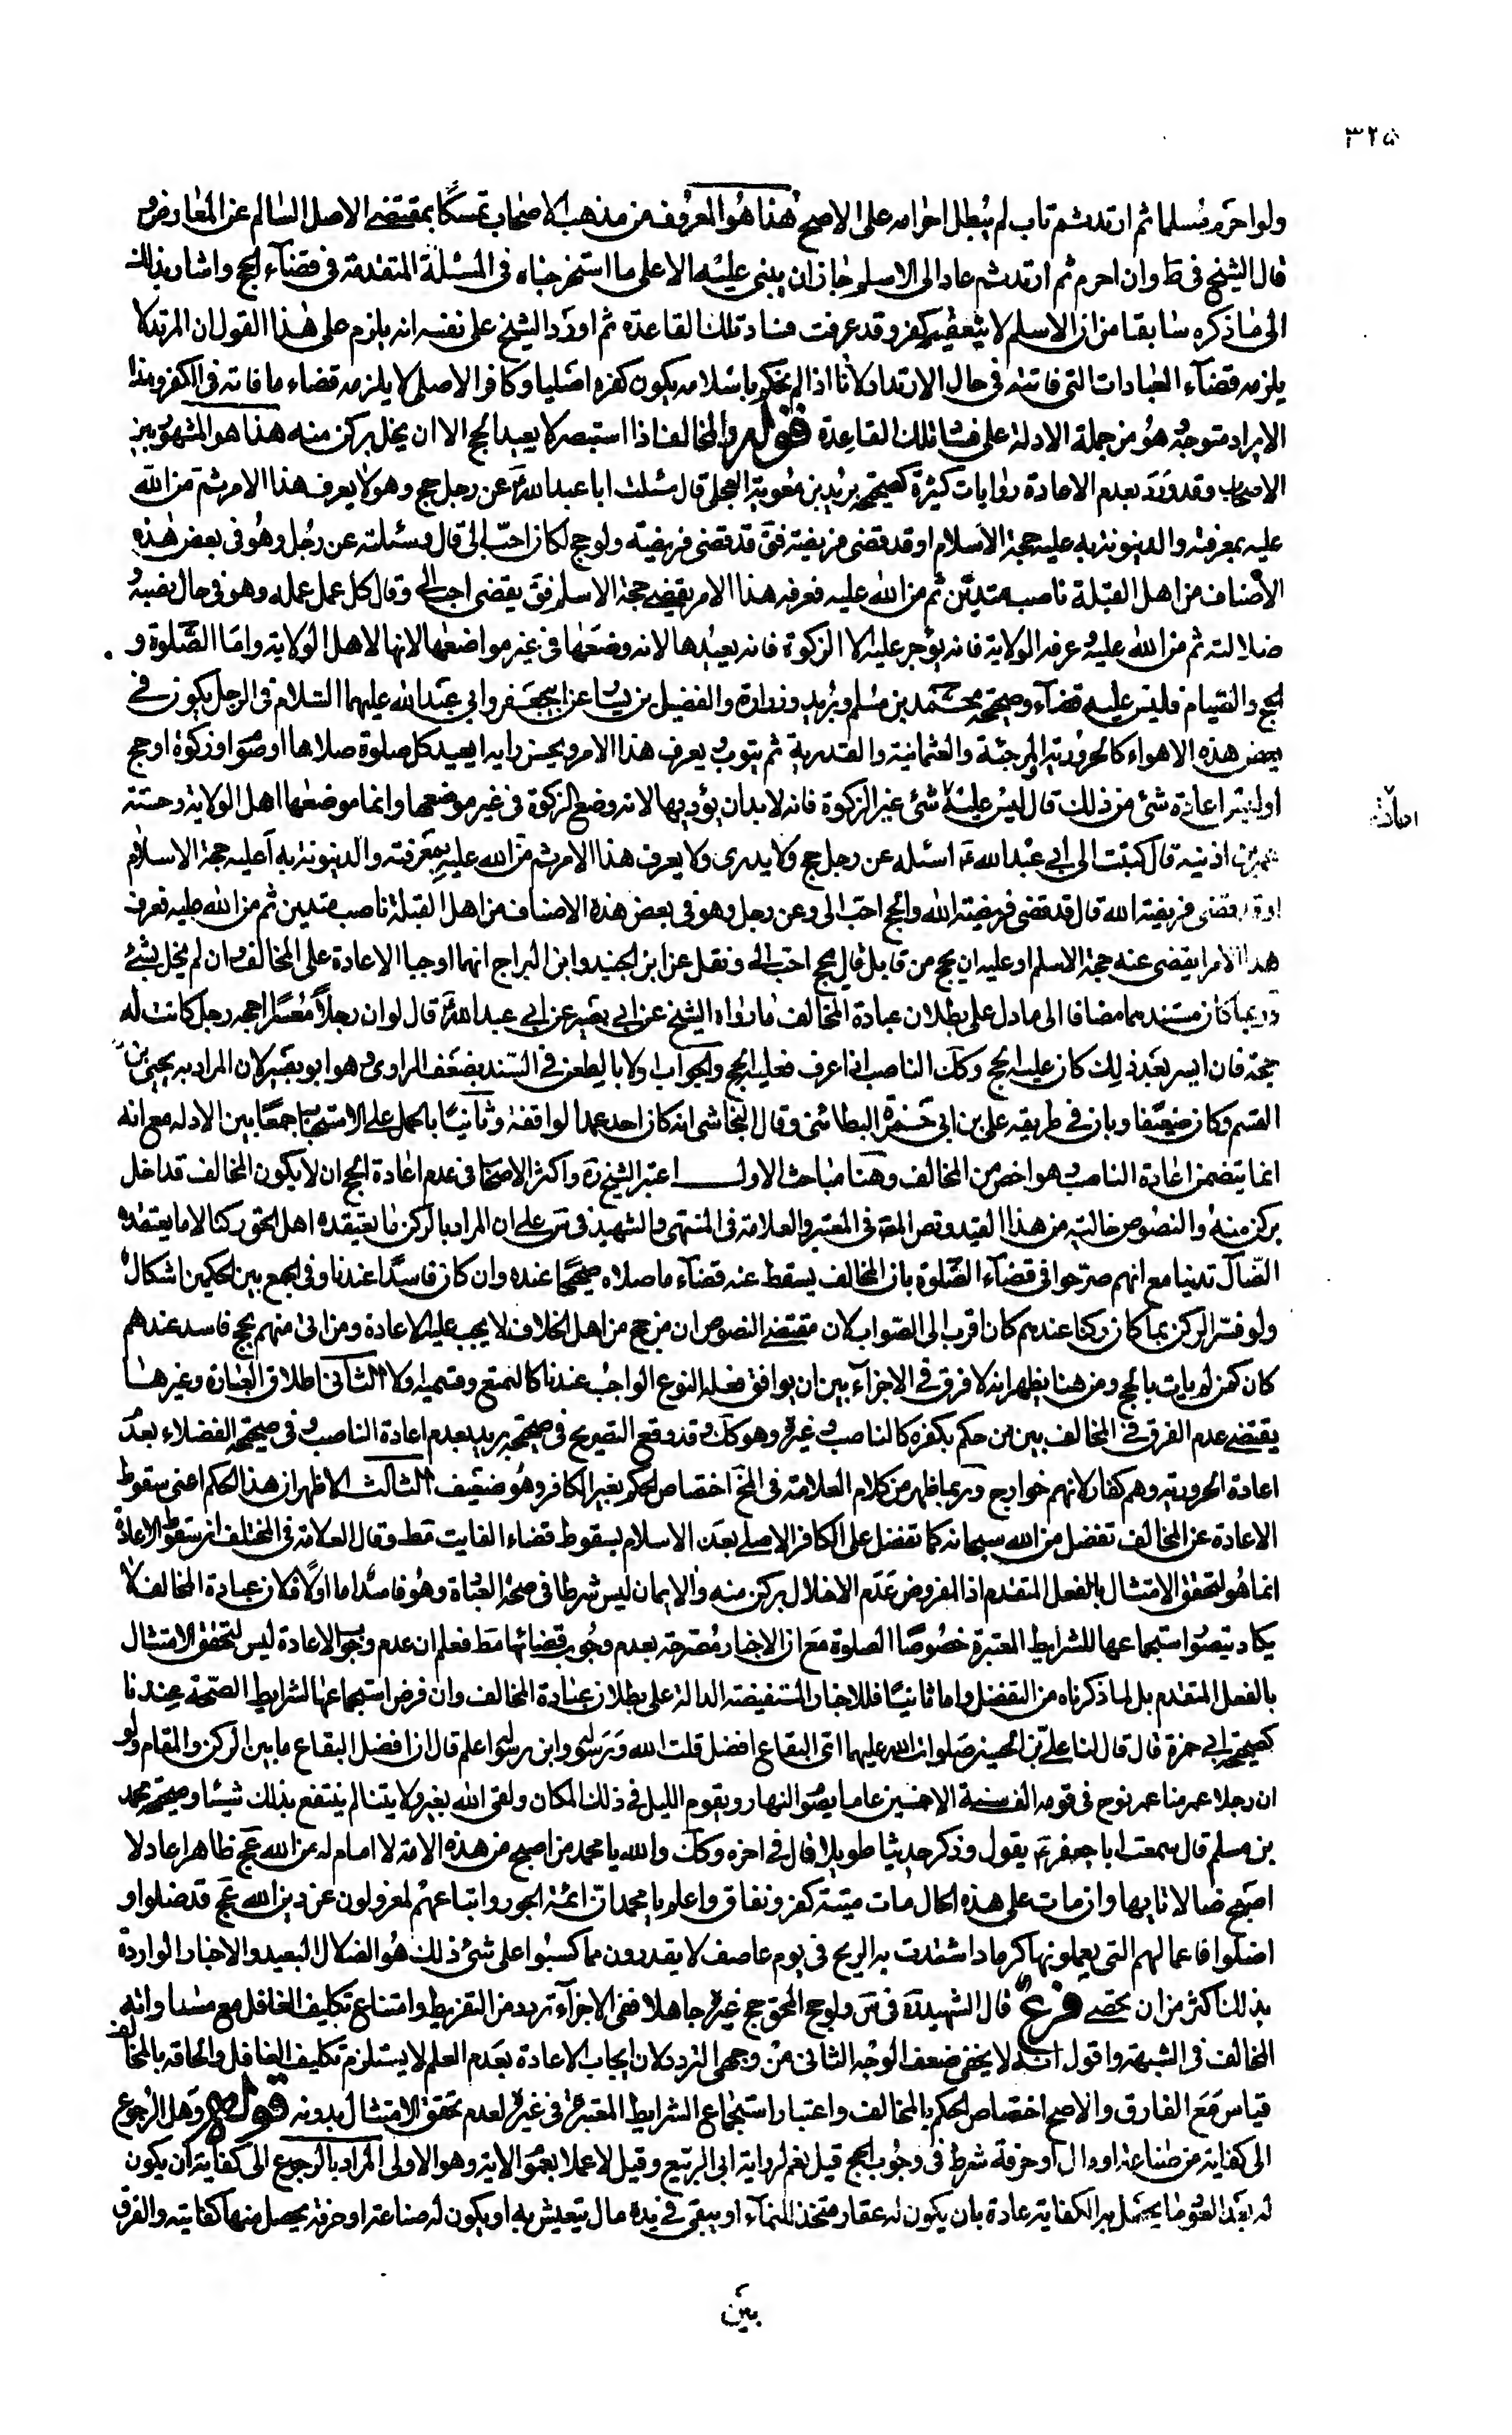 ٣٢٥
ولو احرم مسلما ثم ارتد ثم تاب لم يبطل احرامه على الاصح هذا هو المعروف من مذهب الاصحاب تمسكا بمقتضى الاصل السالم عن المعارض و
قال الشيخ في ط وان احرم ثم ارتد ثم عاد الى الاسلم جاز ان يبنى عليه الا على ما استخرجناه في المسئلة المتقدمة في قضاء الحج واشار بذلك
الى ما ذكره سابقا من ان الاسلم لا يتعقبه كفر وقد عرفت فساد تلك القاعدة ثم اورد الشيخ على نفسه انه يلزم على هذا القول ان المرتد لا
يلزمه قضاء العبادات التي فاتته في حال الارتداد لانا اذا لم نحكم باسلامه يكون كفره اصليا وكافر الاصلي لا يلزمه قضاء ما فاته في الكفر وهذا
الايراد متوجه هو من جملة الادلة على فساد تلك القاعدة قوله والمخالف اذا استبصر لا يعيد الحج الا ان يخل بركن منه هذا هو المشهور بين
الاصحاب وقد ورد بعدم الاعادة روايات كثيرة كصحيحة بريد بن معوية العجلي قال سئلت ابا عبد الله ع عن رجل حج وهو لا يعرف هذا الامر ثم من الله
عليه بمعرفته والدينونة به عليه حجة الاسلام او قد قضى فريضته فق قد قضى فريضته ولو حج لكان احب الى قال وسئلته عن رجل وهو في بعض هذه
الاصناف من اهل القبلة ناصب متدين ثم من الله عليه فعرفه هذا الامر يقضى حجة الاسلم فق يقضى احب الى وقال كل عمل عمله وهو في حال نصبه و
ضلالته ثم من الله عليه وعرفه الولاية فانه يؤجر عليه الا الزكوة فانه يعيدها لانه وضعها في غير مواضعها لانها لاهل الولاية واما الصلوة و
الحج والصيام فليس عليه قضاء وصحيحة محمد بن مسلم وبريد وزرارة والفضيل بن يسار عن ابي جعفر وابي عبد الله عليهما السلام في الرجل يكون في
بعض هذه الاهواء كالحرورية والمرجئة والعثمانية والقدرية ثم يتوب ويعرف هذا الامر ويحسن رايه ايعيد كل صلوة صلاها او صوم او زكوة او حج
او ليس اعادة شئ من ذلك قال ليس عليه اعادة شئ غير الزكوة فانه لا بد ان يؤديها لانه وضع الزكوة في غير موضعها وانما موضعها اهل الولاية وحسنة
عمر بن اذينه قال كتبت الى ابي عبد الله ع اسئله عن رجل حج ولا يدرى ولا يعرف هذا الامر ثم من الله عليه بمعرفته والدينونة به اعليه حجة الاسلام
او قد قضى فريضة الله قال قد قضى فريضة الله والحج احب الى وعن رجل وهو في بعض هذه الاصناف من اهل القبلة ناصب متدين ثم من الله عليه فعرف
هذا الامر ايقضى عنه حجة الاسلم او عليه ان يحج من قابل قال يحج احب الى ونقل عن ابن الجنيد وابن البراج انهما اوجبا الاعادة على المخالف وان لم يخل بشئ
وربما كان مستندهما مضافا الى ما دل على بطلان عبادة المخالف ما رواه الشيخ عن ابي بصير عن ابي عبد الله ع قال لو ان رجلا معسرا احجه رجل كانت له
حجة فان ايسر بعد ذلك كان عليه الحج وكك الناصب اذا عرف فعليه الحج والجواب اولا بالطعن في السند بضعف الراوى وهو ابو بصير لان المراد به يحيى بن
القسم وكان ضعيفا وبان في طريقه على بن ابي حمزة البطائنى وقال النجاشى انه كان احد عمد الواقفة وثانيا بالحمل على الاستحباب جمعا بين الادله مع انه
انما يتضمن اعادة الناصب وهو اخص من المخالف وهنا مباحث الاول اعتبر الشيخ ره واكثر الاصحاب في عدم اعادة الحج ان لا يكون المخالف قد اخل
بركن منه والنصوص خالية من هذا القيد ونص المص في المعتبر والعلامة في المنتهى والشهيد في س على ان المراد بالركن ما يعتقده اهل الحق ركنا لا ما يعتقده
الضال تدينا مع انهم صرحوا في قضاء الصلوة بان المخالف يسقط عنه قضاء ما صلاه صحيحا عنده وان كان فاسدا عندنا وفي الجمع بين الحكمين اشكال
ولو فسر الركن بما كان ركنا عندهم كان اقرب الى الصواب لان مقتضى النصوص ان من حج من اهل الخلاف لا يجب عليه الاعادة ومن اتى منهم بحج فاسد عندهم
كان كمن لم يات بالحج ومن هنا يظهر انه لا فرق في الاجزاء بين ان يوافق فعله النوع الواجب عندنا كالتمتع وقسميه او لا الثاني اطلاق العبارة وغيرها
يقتضى عدم الفرق في المخالف بين من حكم بكفره كالناصب وغيره وهو كك وقد وقع التصريح في صحيحة بريد بعدم اعادة الناصب وفي صحيحة الفضلاء بعدم
اعادة الحرورية وهم كفار لانهم خوارج وربما ظهر من كلام العلامة في المخ اختصاص الحكم بغير الكافر وهو ضعيف الثالث الاظهر ان هذا الحكم اعنى سقوط
الاعادة عن المخالف تفضل من الله سبحانه كما تفضل على الكافر الاصلى بعد الاسلام بسقوط قضاء الفايت مط وقال العلامة في المختلف ان سقوط الاعادة
انما هو لتحقق الامتثال بالفعل المتقدم اذ المفروض عدم الاخلال بركن منه والايمان ليس شرطا في صحة العبادة وهو فاسد اما اولا فلان عبادة المخالف لا
يكاد يتصور استجماعها للشرايط المعتبرة خصوصا الصلوة مع ان الاخبار مصرحة بعدم وجوب قضائها مط فعلم ان عدم وجوب الاعادة ليس لتحقق الامتثال
بالفعل المتقدم بل لما ذكرناه من التفضل واما ثانيا فللاخبار المستفيضة الدالة على بطلان عبادة المخالف وان فرض استجماعها لشرايط الصحة عندنا
كصحيحة ابي حمزة قال قال لنا على بن الحسين صلوات الله عليهما اى البقاع افضل قلت الله ورسوله وابن رسوله اعلم قال ان افضل البقاع ما بين الركن والمقام ولو
ان رجلا عمر ما عمر نوح في قومه الف سنة الا خمسين عاما يصوم النهار ويقوم الليل في ذلك المكان ولقى الله بغير ولايتنا لم ينتفع بذلك شيئا وصحيحة محمد
بن مسلم قال سمعت ابا جعفر ع يقول وذكر حديثا طويلا قال في اخره وكك والله يا محمد من اصبح من هذه الامة لا امام له من الله عج ظاهرا عادلا
اصبح ضالا تايها وان مات على هذه الحال مات ميتة كفر ونفاق واعلم يا محمد ان ائمة الجور واتباعهم لمعزولون عن دين الله عج قد ضلوا و
اضلوا فاعمالهم التي يعملونها كرماد اشتدت به الريح في يوم عاصف لا يقدرون مما كسبوا على شئ ذلك هو الضلال البعيد والاخبار الواردة
بذلك اكثر من ان تحصى فرع قال الشهيد ره في س ولو حج المحق حج غيره جاهلا ففي الاجزاء تردد من التفريط وامتناع تكليف الغافل مع مساواته
المخالف في الشبهة واقول انه لا يخفى ضعف الوجه الثاني من وجهى التردد لان ايجاب الاعادة بعدم العلم لا يستلزم تكليف الغافل والحاقه بالمخالف
قياس مع الفارق والاصح اختصاص الحكم بالمخالف واعتبار استجماع الشرايط المعتبرة في غيره لعدم تحقق الامتثال بدونه قوله وهل الرجوع
الى كفاية من صناعة او مال او حرفة شرط في وجوب الحج قيل نعم لرواية ابى الربيع وقيل لا عملا بعموم الاية وهو الاولى المراد بالرجوع الى كفاية ان يكون
له بعد العود ما يحصل به الكفاية عادة بان يكون له عقار متخذ للنماء او يبقى في يده مال يتعيش به او يكون له صناعة او حرفة يحصل منها كفايته والفرق
بين
اعادة